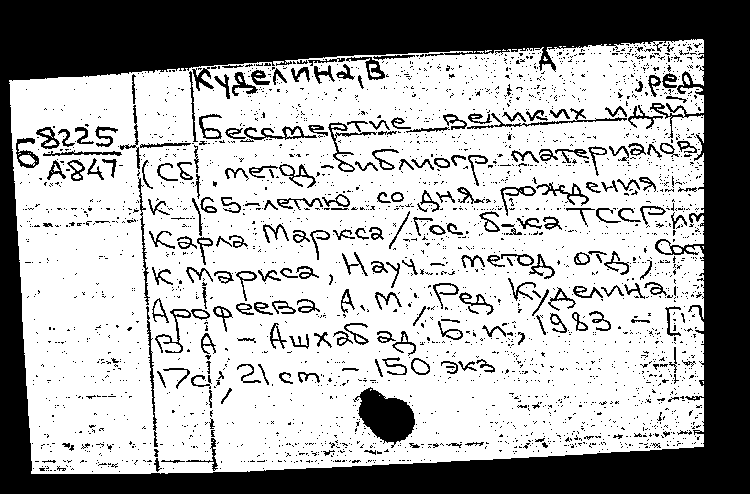 Куделина, В А , ред
Б 8225
А847
Бессмертие великих идей
(Сб. метод.-библиогр. материалов)
к 165-летию со дня рождения
Карла Маркса / Гос. б-ка ТССР им
К. Маркса, Науч.-метод. отд.; Сост
Арофеева А. М.; Ред. Куделина
В. А. - Ашхабад: Б. и., 1983. -
17с.; 21 cm. - 150 экз.